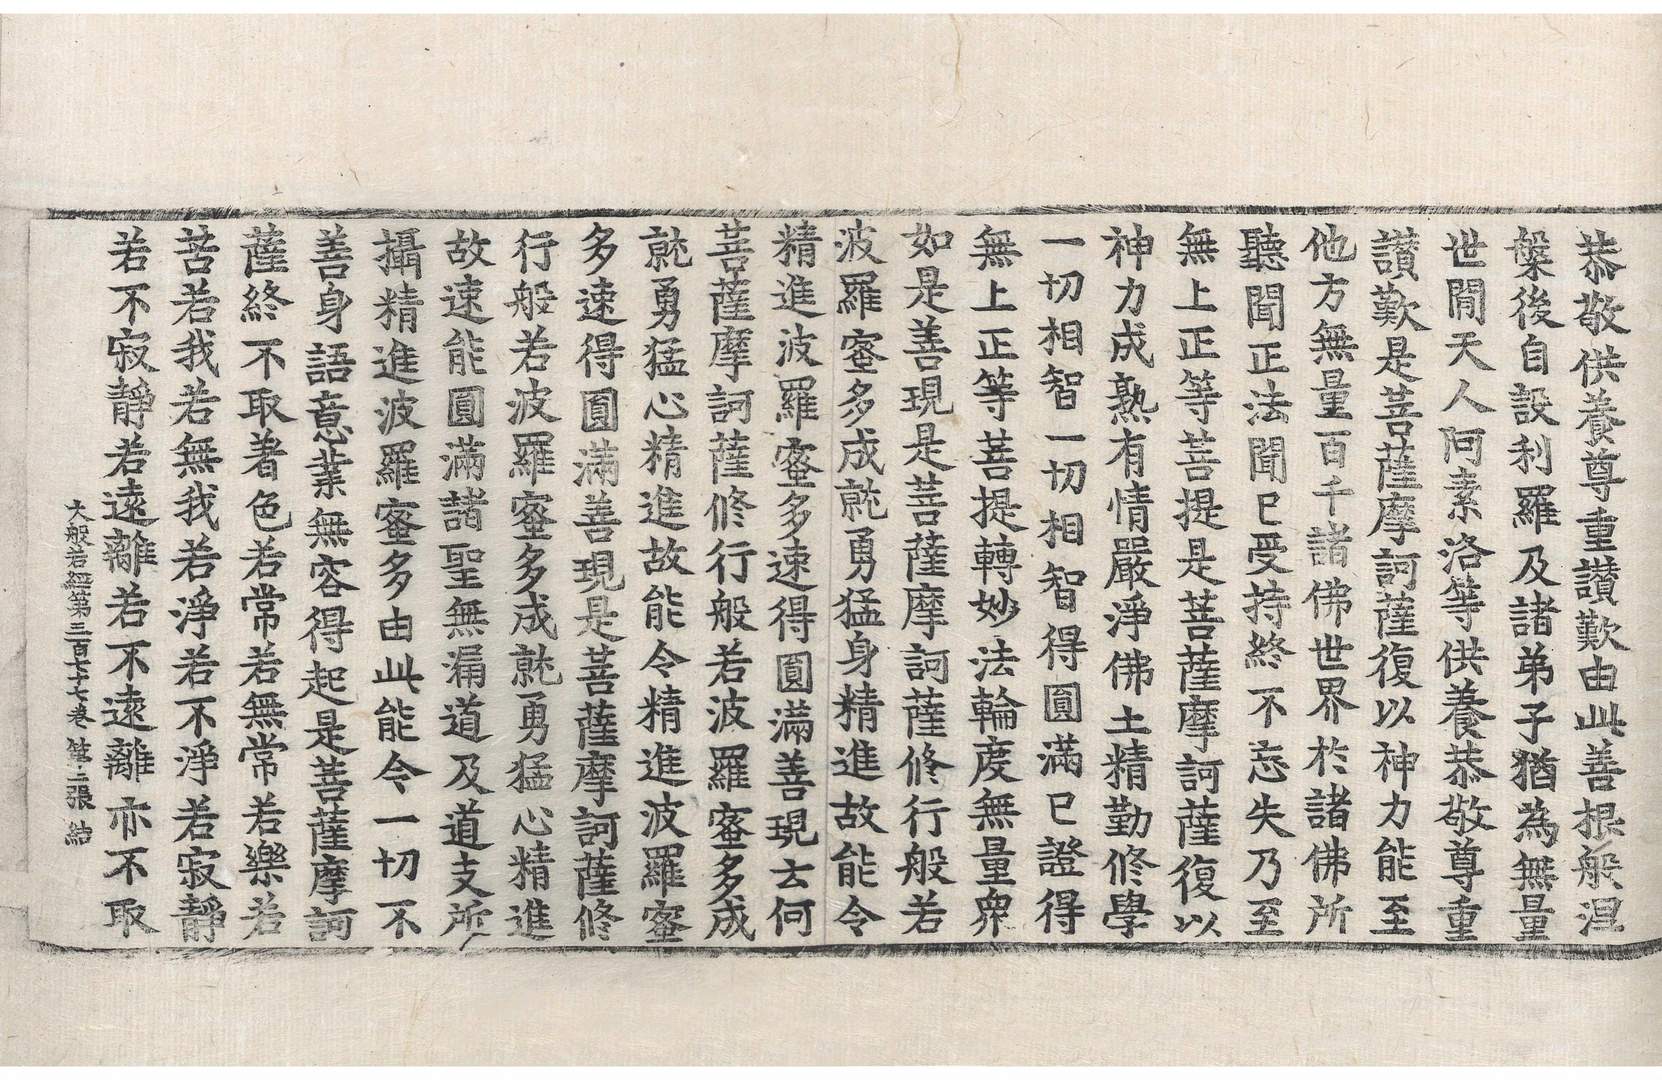 恭敬供養尊重讃歎由此善根般涅
槃後自設利羅及諸弟子猶為無量
世閒天人阿素洛等供養恭敬尊重
讃歎是菩薩摩訶薩復以神力能至
他方無量百千諸佛世界於諸佛所
聽聞正法聞已受持終不忘失乃至
無上正等菩提是菩薩摩訶薩復以
神力成熟有情嚴淨佛土精勤修學
一切相智一切相智得圓滿已證得
無上正等菩提轉妙法輪度無量衆
如是善現是菩薩摩訶薩修行般若
波羅蜜多成就勇猛身精進故能令
精進波羅蜜多速得圓滿善現云何
菩薩摩訶薩修行般若波羅蜜多成
就勇猛心精進故能令精進波羅蜜
多速得圓滿善現是菩薩摩訶薩修
行般若波羅蜜多成就勇猛心精進
故速能圓滿諸聖無漏道及道支所
攝精進波羅蜜多由此能令一切不
善身語意業無容得起是菩薩摩訶
薩終不取著色若常若無常若樂若
苦若我若無我若淨若不淨若寂靜
若不寂靜若遠離若不遠離亦不取
大般若經第三百七十七卷 第二張 結